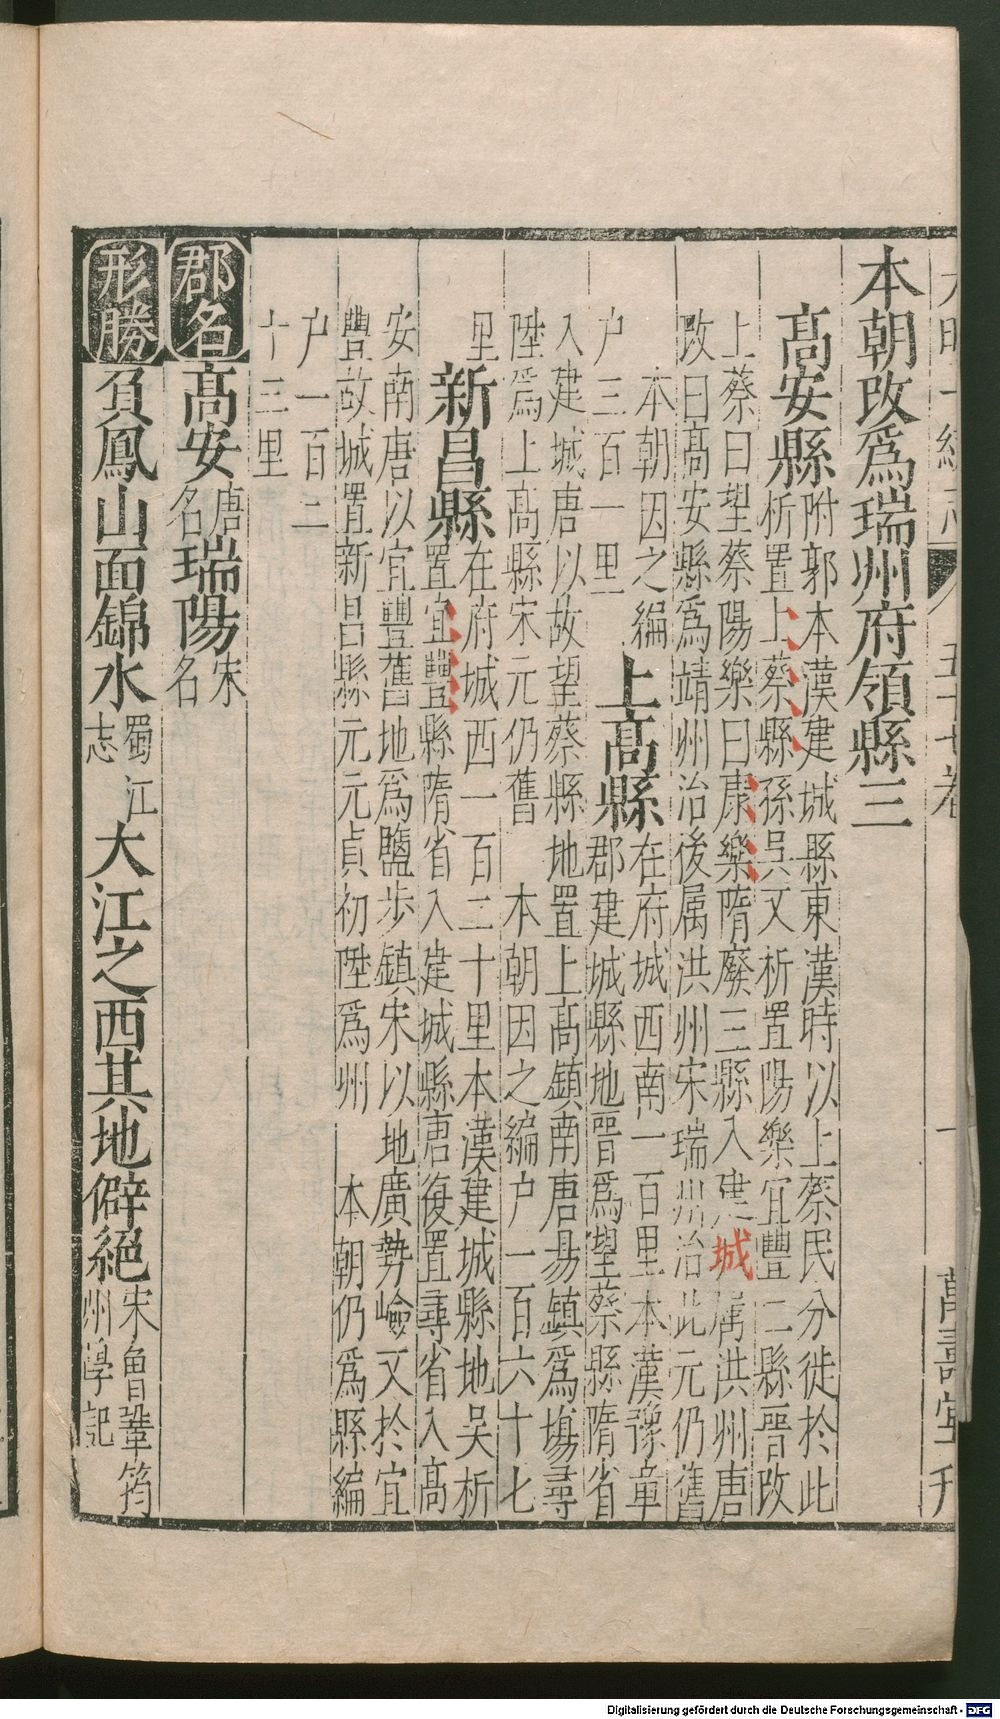 本朝改爲瑞州府領縣三
高安縣
附郭本漢建城縣東漢時以上蔡民分徙於此
析置上蔡縣孫吳又析置陽樂宜豐二縣晉改
上蔡曰望蔡陽樂曰康樂隋廢三縣入建城属洪州唐
改曰高安縣爲靖州治後属洪州宋瑞州治此元仍舊
本朝因之編
户三百一里
上高縣
在府城西南一百里本漢豫章
郡建城縣地晉爲望蔡縣隋省
入建城唐以故望蔡縣地置上高鎮南唐昜鎮爲塲尋
陞爲上高縣宋元仍舊 本朝因之編户一百六十七
里
新昌縣
在府城西一百二十里本漢建城縣地吳析
置宜豐縣隋省入建城縣唐復置尋省入高
安南唐以宜豐舊地爲鹽步鎮宋以地廣勢嶮又於宜
豐故城置新昌縣元元貞初陞爲州 本朝仍爲縣編
户一百二
十三里
郡名
高安
唐
名
瑞陽
宋
名
形勝
負鳳山面錦水
蜀江
志
大江之西其地僻絕
宋曾鞏筠
州學記
Digitalisierung gefördert durch die Deutsche Forschungsgemeinschaft - DFG